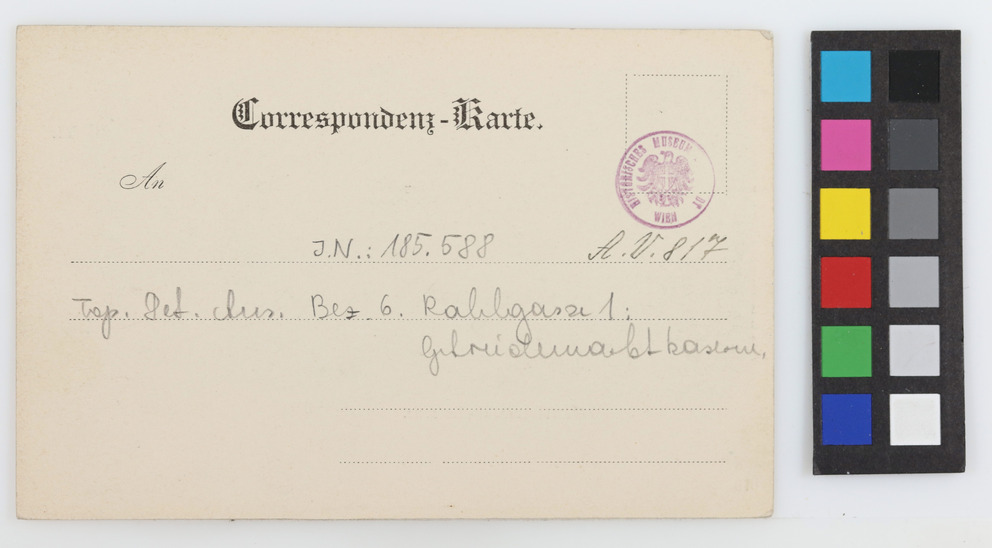 Correspondenz-Karte.
HISTORISCHES MUSEUM
WIEN
An
J.N.: 185.588 A.V. 817
Top. Det. Ans. Bez. 6. Rahlgasse 1:
Getreidemarktkaserne.